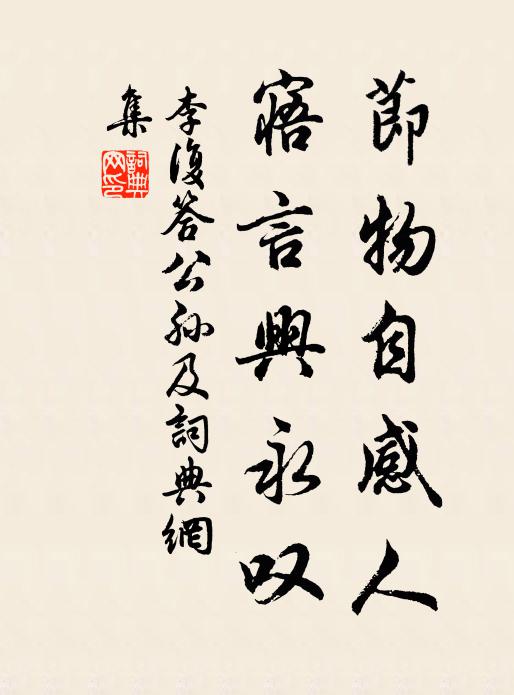 節物自感人
寤言興永叹
李復答公孙及詞典網
集
詞典
网印